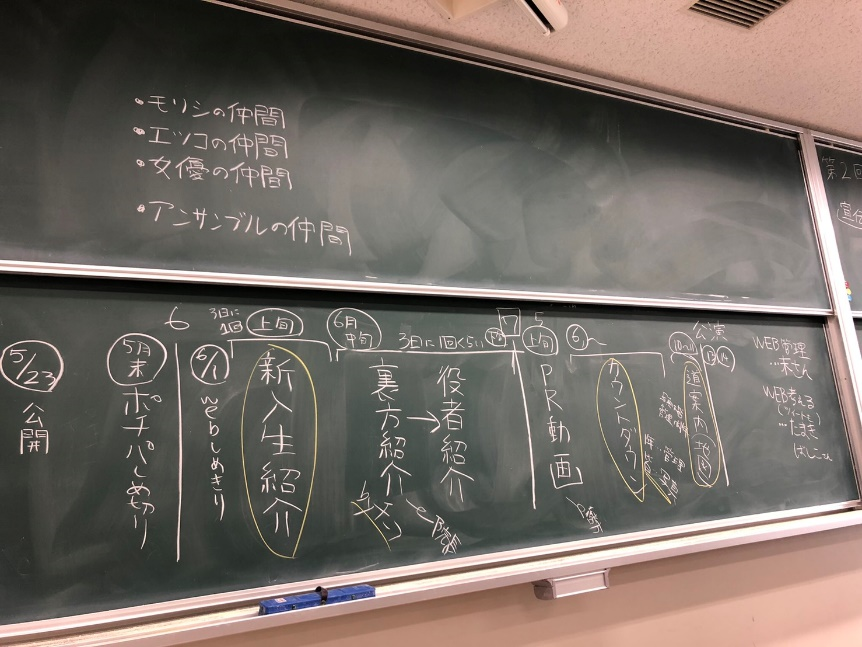 ・モリシの仲間
・エツコの仲間
・女優の仲間
・アンサンブルの仲間
第2回
5/23
公開
5月末
ポチパしめ切り
6
6/1
webしめきり
3日に1回
上旬
新入生紹介
6月中旬
3日に1回くらい
裏方紹介→役者紹介
7
5
上旬
PR動画
6〜
カウントダウン
公演
道案内(地図)
13 14
WEB管理
WEB考える
(ツイートも)